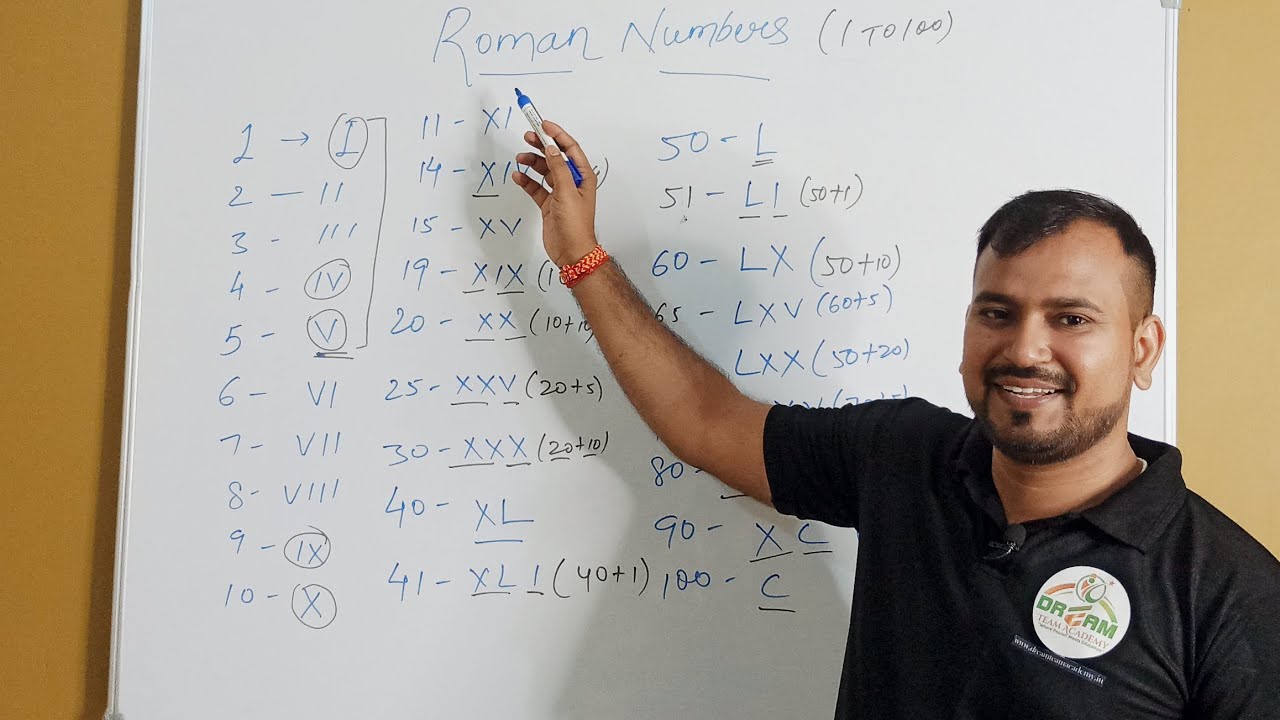 Roman Numbers (1 TO 100)
1 → I
2 — II
3 - III
4 - IV
5 - V
6 - VI
7 - VII
8 - VIII
9 - IX
10 - X
11 - XI
14 - XIV
15 - XV
19 - XIX (1
20 - XX (10+10
25 - XXV (20+5)
30 - XXX (20+10)
40 - XL
41 - XLI (40+1)
50 - L
51 - LI (50+1)
60 - LX (50+10)
65 - LXV (60+5)
LXX (50+20)
80 -
90 - XC
100 - C
DREAM
TEAM ACADEMY
www.dreamteamacademy.in